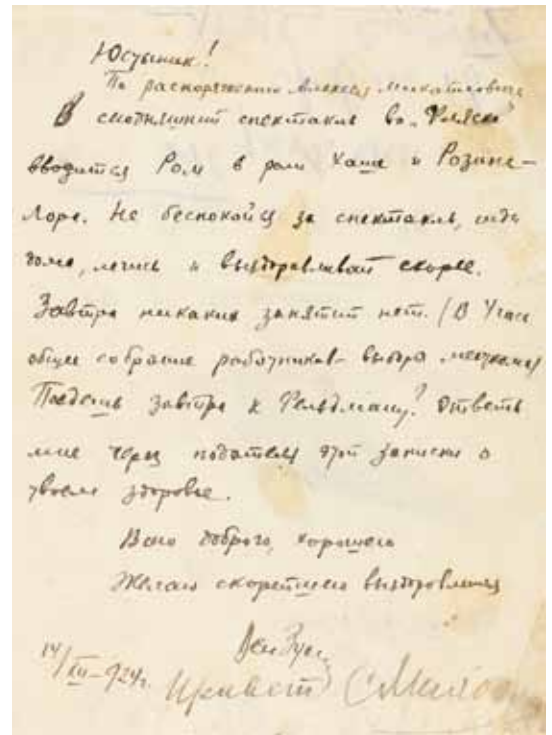 Юстыник!
По распоряжению Алексея Михайловича
В сегодняшний спектакль во „Фляске“
вводится Ром в роли Хаше и Розине –
Лоре. Не беспокойся за спектакль, сиди
дома, лечись и выздоравливай скорее.
Завтра никаких занятий нет. (В 4 часа
общее собрание работников – выбора месткома)
Поедешь завтра к Фельдману? Ответь
мне через подателя этой записки о
твоем здоровье.
Всего доброго, хорошего
Желаю скорейшего выздоровления
14/XII–924г.
Привет